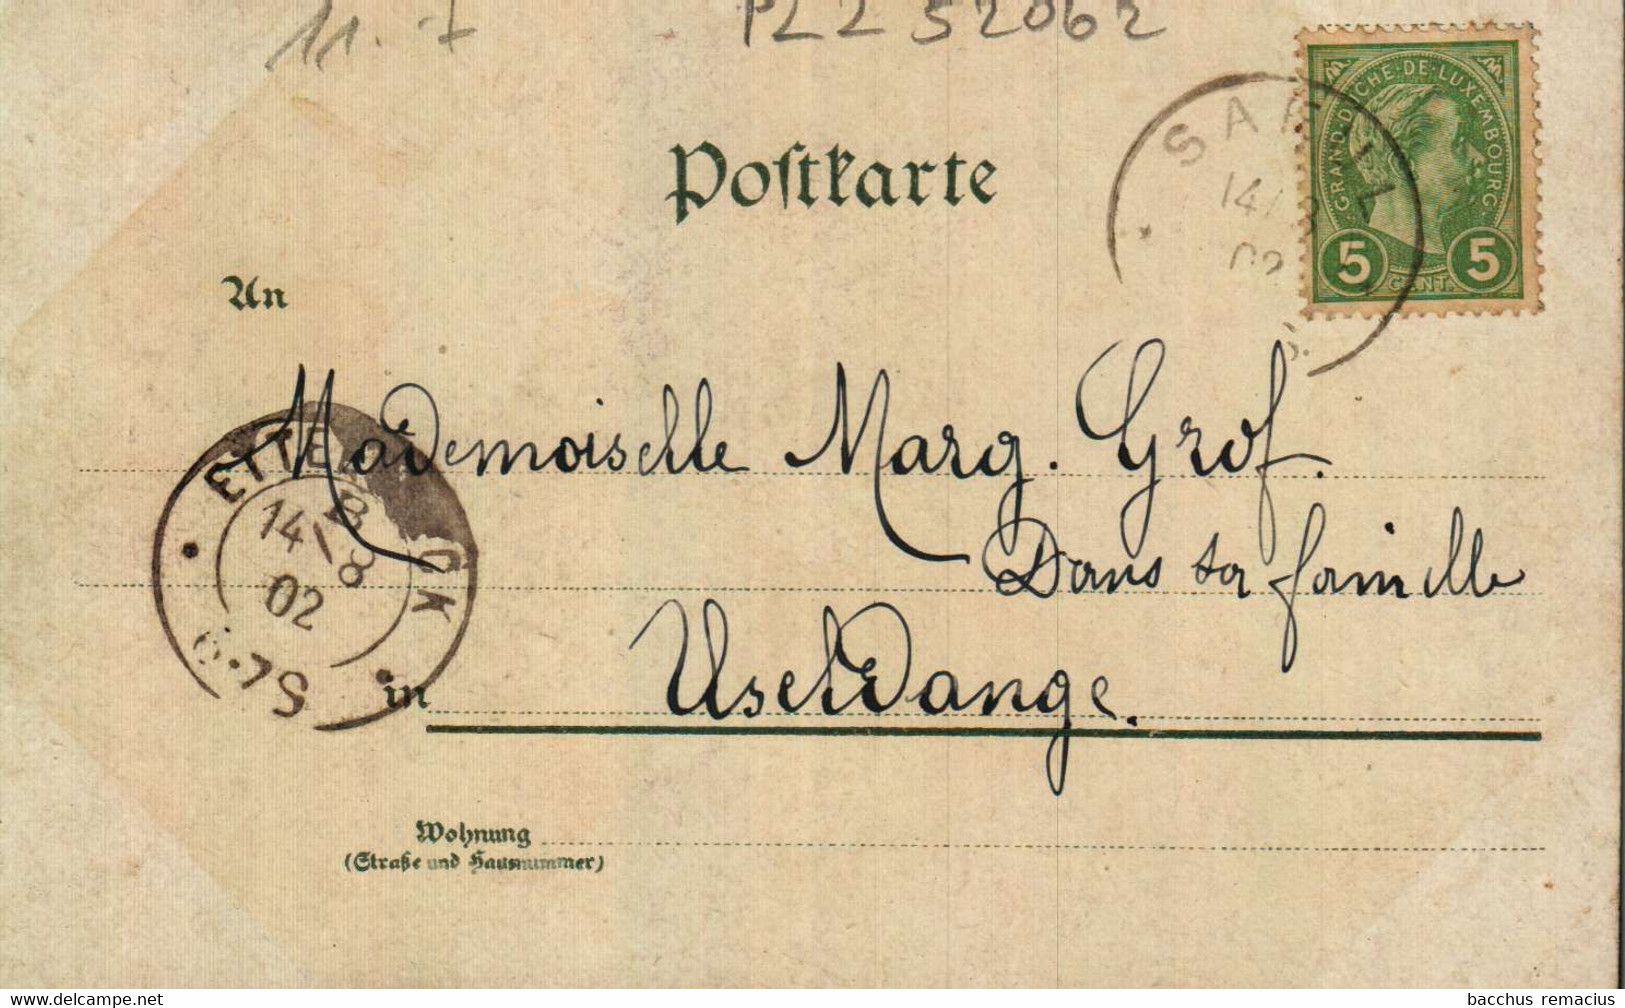 11. 7 PLZ 52062
GRAND-DUCHÉ-DE-LUXEMBOURG
5 CENT. 5
SAEUL
14/8
02
Postkarte
An
Mademoiselle Marg. Graf.
Dans sa famille
in Useldange.
ETTELBRÜCK
14/8
02
6-7S
Wohnung
(Straße und Hausnummer)
bacchus remacius